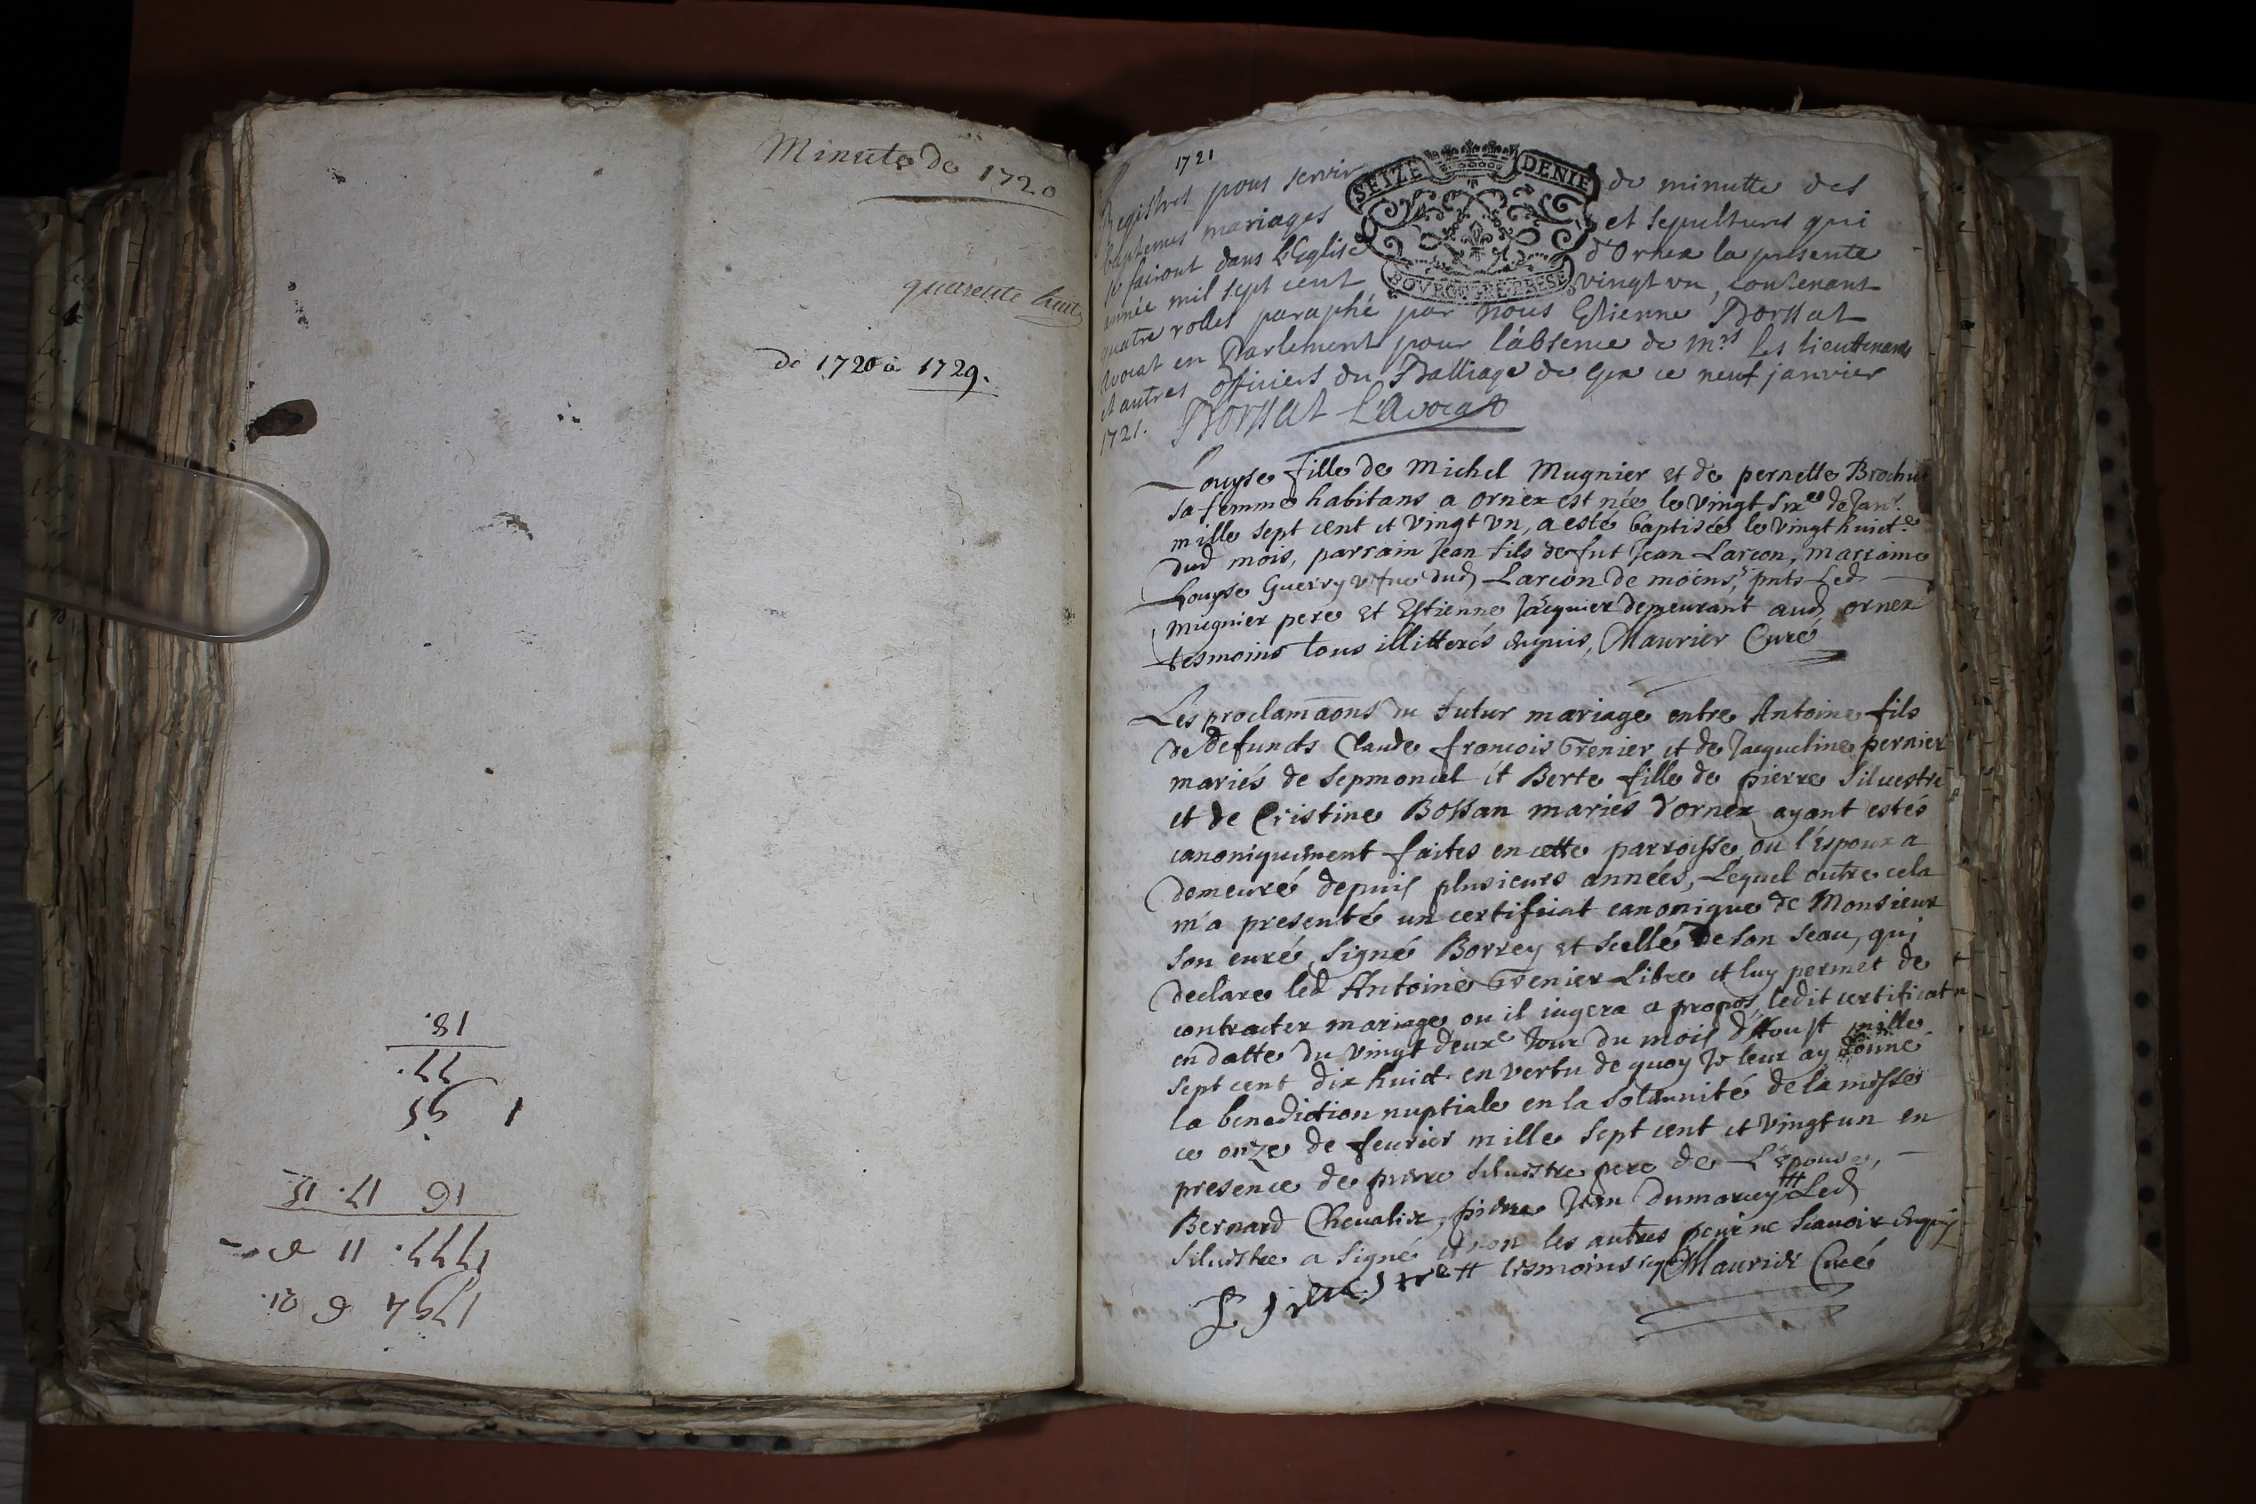 Minute de 1720
quarente huit
de 1720 a 1729.
18.
77.
1 95
16 17. 15
1777. 11
1794 6 21.
1721
SEIZE DENIE
BOURG BRESSE
Registres pour servir de minutte des
baptemes mariages et sepultures qui
se fairont dans l'Eglise d'Ornex la presente
année mil sept cent vingt un, contenant
quatre rolles paraphé par nous Etienne Borssat
avocat en Parlement pour l'absence de mrs les lieuttenants
et autres officiers du Balliage de Gex ce neuf janvier
1721. Borssat L'avocat
Louyse fille de Michel Mugnier et de pernette Brochu
sa femme habitans a ornex est née le vingt sixe de Janr.
mille sept cent et vingt un, a esté baptisée le vingt huicte
dud mois, parrain Jean fils de fut Jean Larcon, marraine
Louyse Guerry vefue dud Larcon de moëns, pnts Led
mugnier pere et Estienne Jacquier demeurant aud ornex
tesmoins tous illitterés enquis, Maurier Curé
Les proclamaons du futur mariage entre Antoine fils
de defuncts Claude francois Grenier et de Jacqueline pernier
mariés de sepmoncel et Berte fille de pierre Siluestre
et de Cristine Bossan mariés d'ornex ayant estés
canoniquement faites en cette parroisse ou l'espoux a
demeuré depuis plusieurs années, Lequel outre cela
m'a presenté un certificat canonique de Monsieur
son curé, signé Borrey et scellé de son seau, qui
declare led Antoine Grenier Libre et luy permet de
contracter mariage ou il iugera a propos, ledit certificat
en datte du vingt deuxe Jour du mois d'Aoust mille
sept cent dix huict. en vertu de quoy Je leur ay donné
la benediction nuptiale en la solemnité de la messe
ce onze de feurier mille sept cent et vingt un en
presence de pierre Siluestre pere de L'Epouse,
Bernard Cheualier, pierre Jean dumarcey # Led
Siluestre a signé et non les autres pour ne scauoir enquis
P Siluestre # tesmoins Maurier Curé